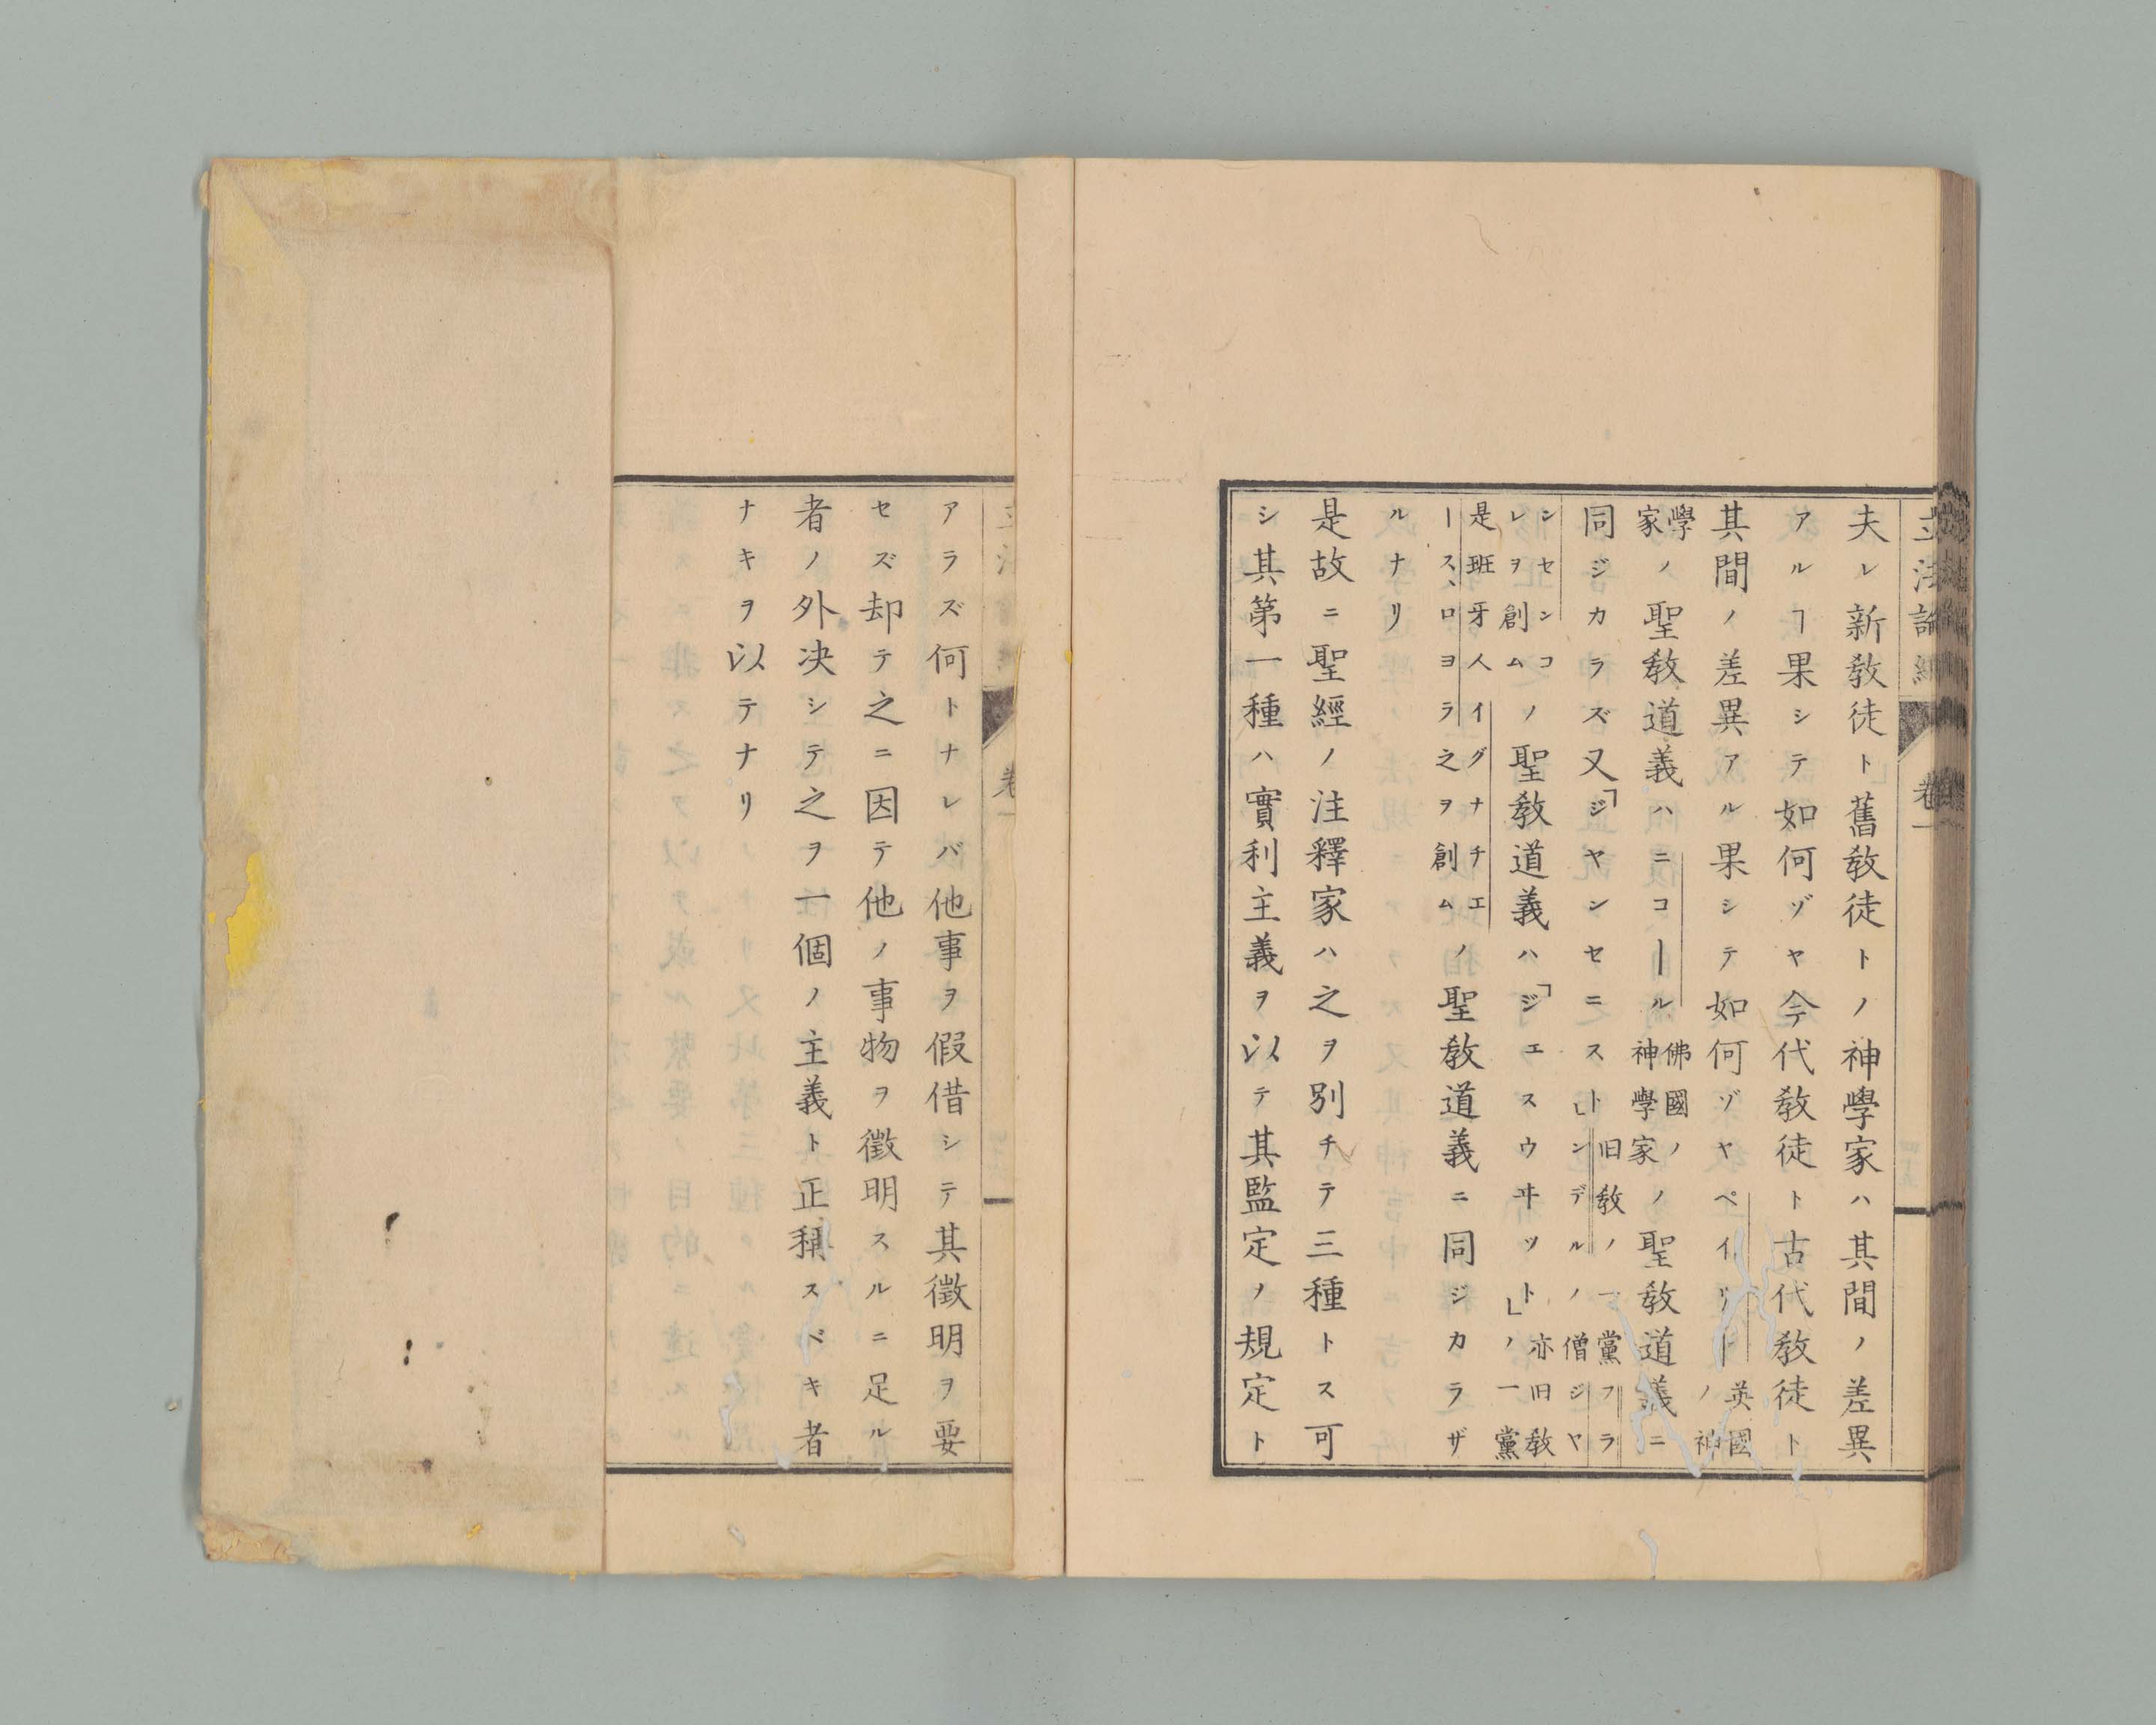 立法論綱 卷一
夫レ新敎徒ト舊敎徒トノ神學家ハ其間ノ差異
アルヿ果シテ如何ゾヤ今代敎徒ト古代敎徒ト
其間ノ差異アル果シテ如何ゾヤペイリー英國ノ神
學家ノ聖敎道義ハニコール佛國ノ神學家ノ聖敎道義ニ
同ジカラズ又「ジヤンセニスト」旧敎ノ一黨フランデルノ僧ジヤ
ンセンコレヲ創ムノ聖敎道義ハ「ジエスウヰツト」亦旧敎ノ一黨
是班牙人イグナチエースヽロヨラ之ヲ創ムノ聖敎道義ニ同ジカラザ
ルナリ
是故ニ聖經ノ注釋家ハ之ヲ別チテ三種トス可
シ其第一種ハ實利主義ヲ以テ其監定ノ規定ト
卷一
アラズ何トナレバ他事ヲ假借シテ其徵明ヲ要
セズ却テ之ニ因テ他ノ事物ヲ徵明スルニ足ル
者ノ外决シテ之ヲ一個ノ主義ト正稱スベキ者
ナキヲ以テナリ